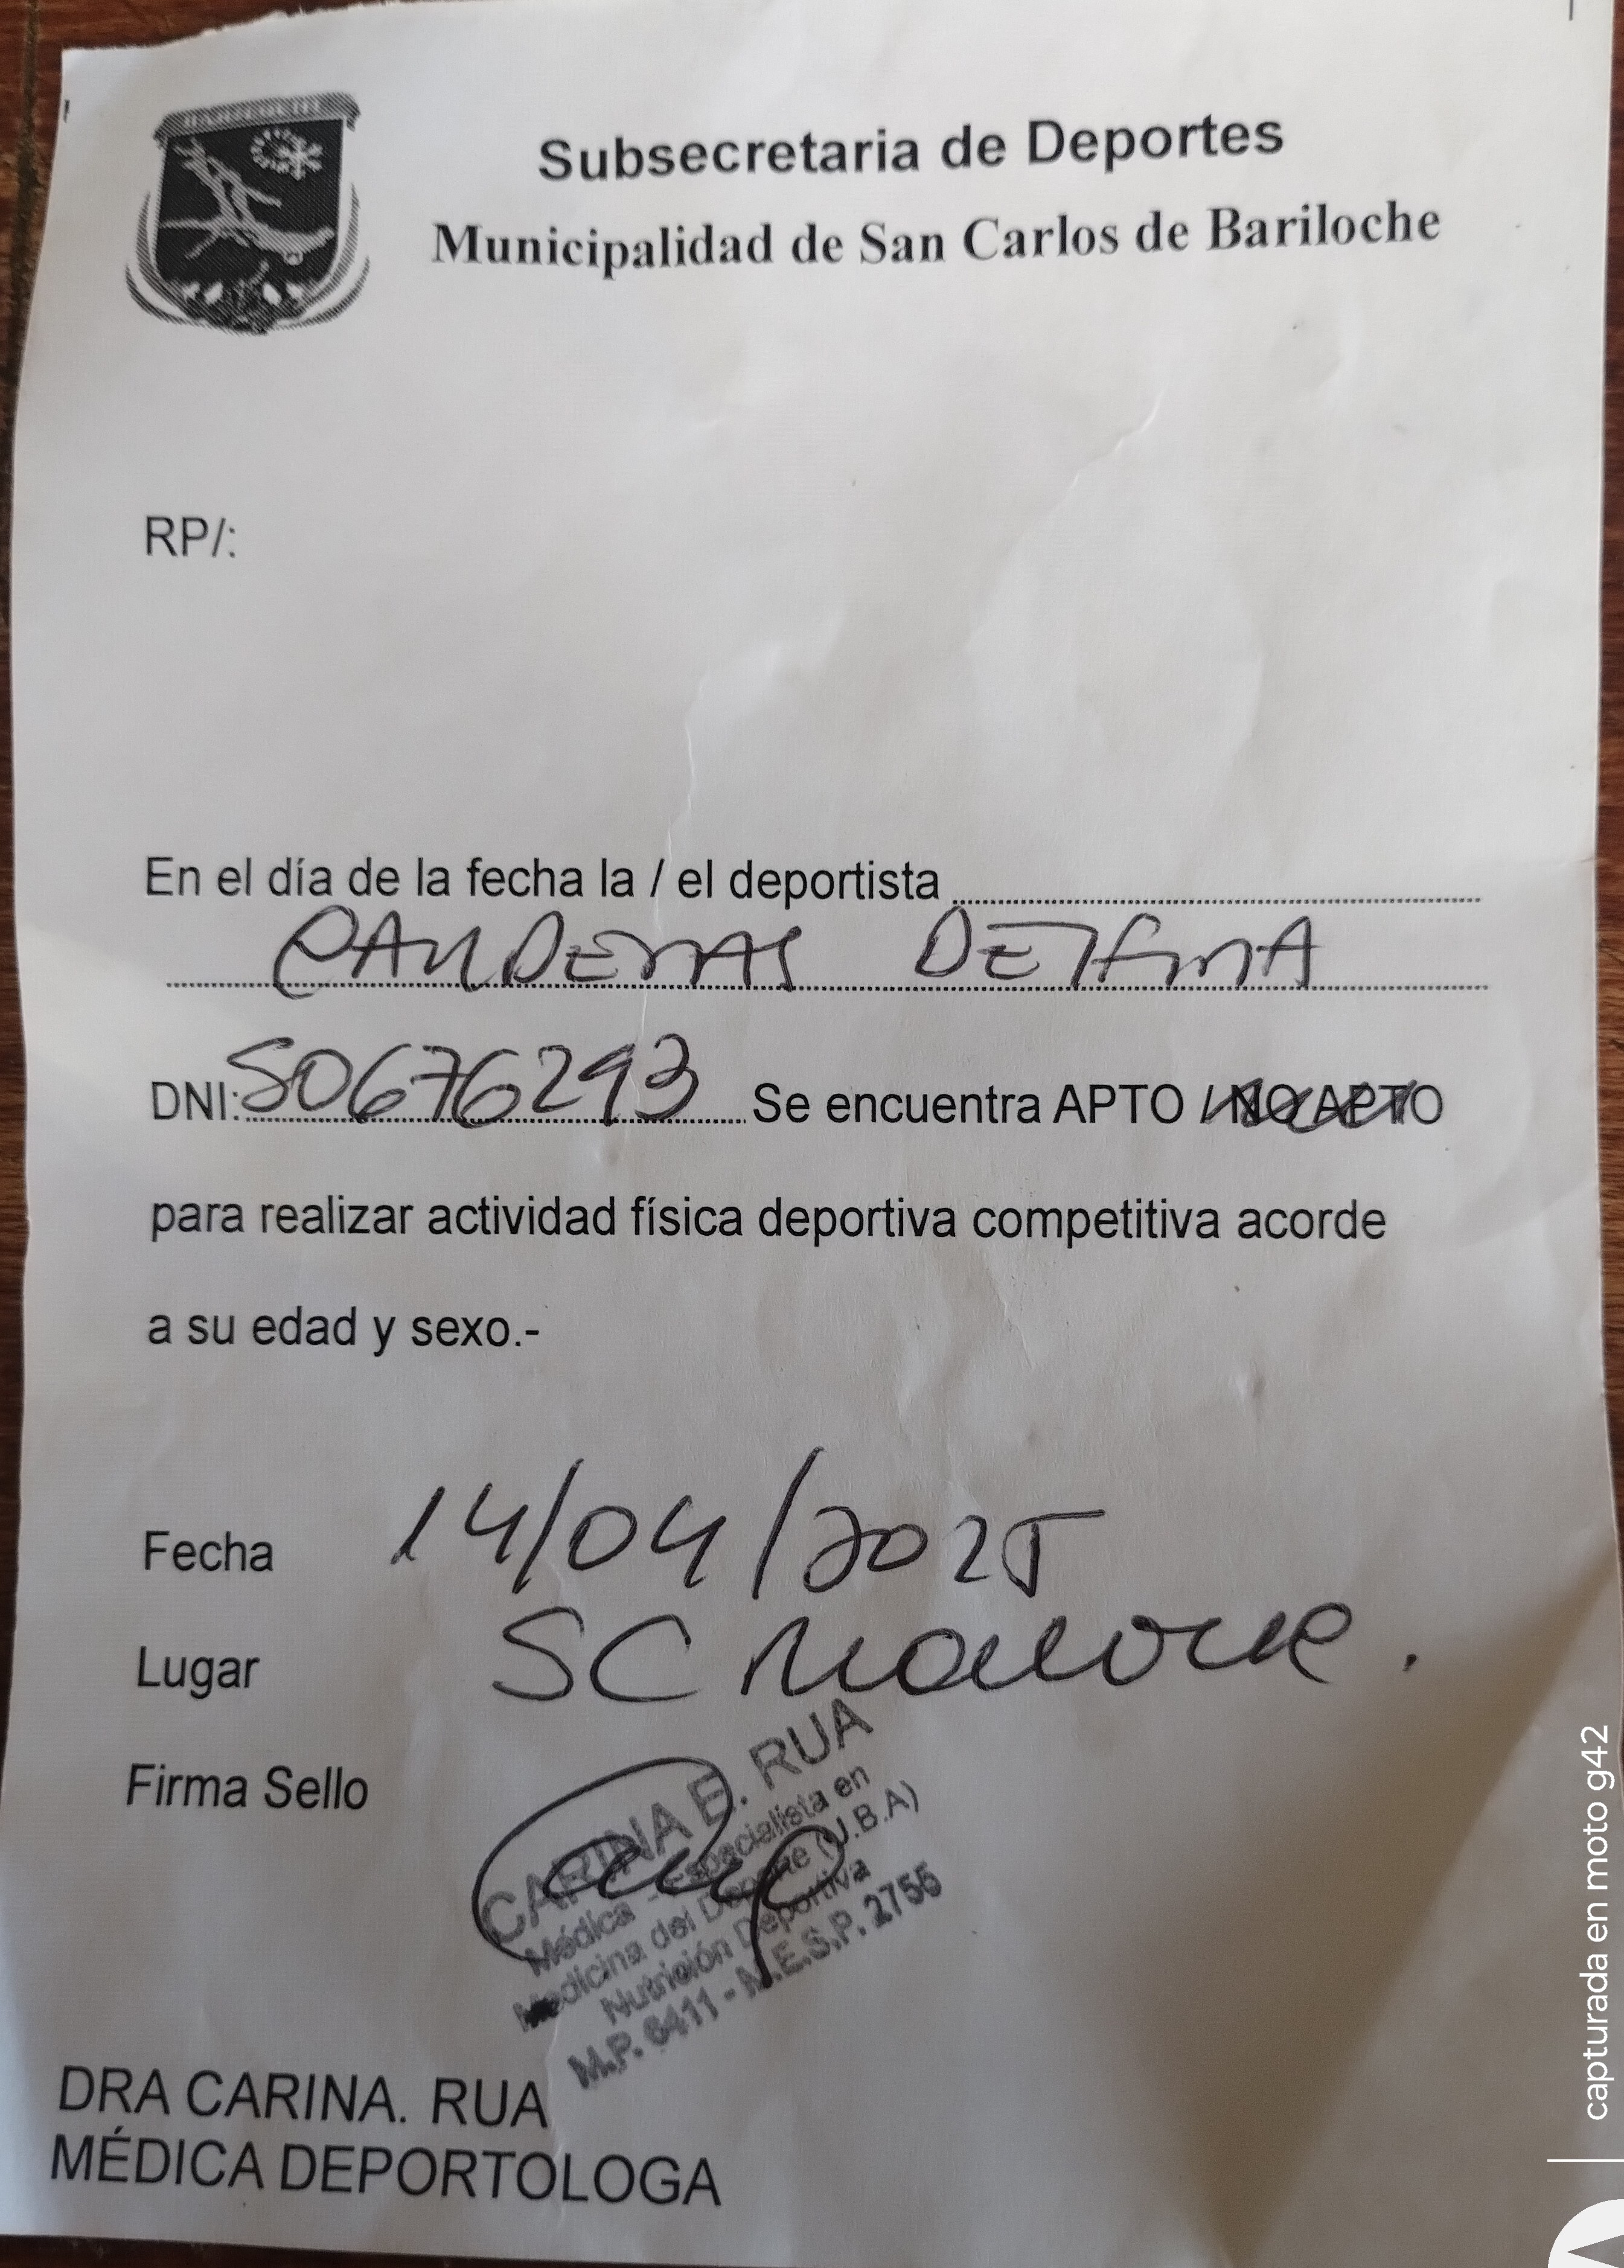 BARILOCHE
Subsecretaria de Deportes
Municipalidad de San Carlos de Bariloche
RP/:
En el día de la fecha la / el deportista
DELFINA
DNI: 50676293 Se encuentra APTO / NO APTO
para realizar actividad física deportiva competitiva acorde
a su edad y sexo.-
Fecha 14/04/2025
Lugar SC Bariloche.
Firma Sello
CARINA E. RUA
Médica - Especialista en
Medicina del Deporte (U.B.A)
Nutrición Deportiva
M.P. 6411 - M.E.S.P. 2755
DRA CARINA. RUA
MÉDICA DEPORTOLOGA
capturada en moto g42